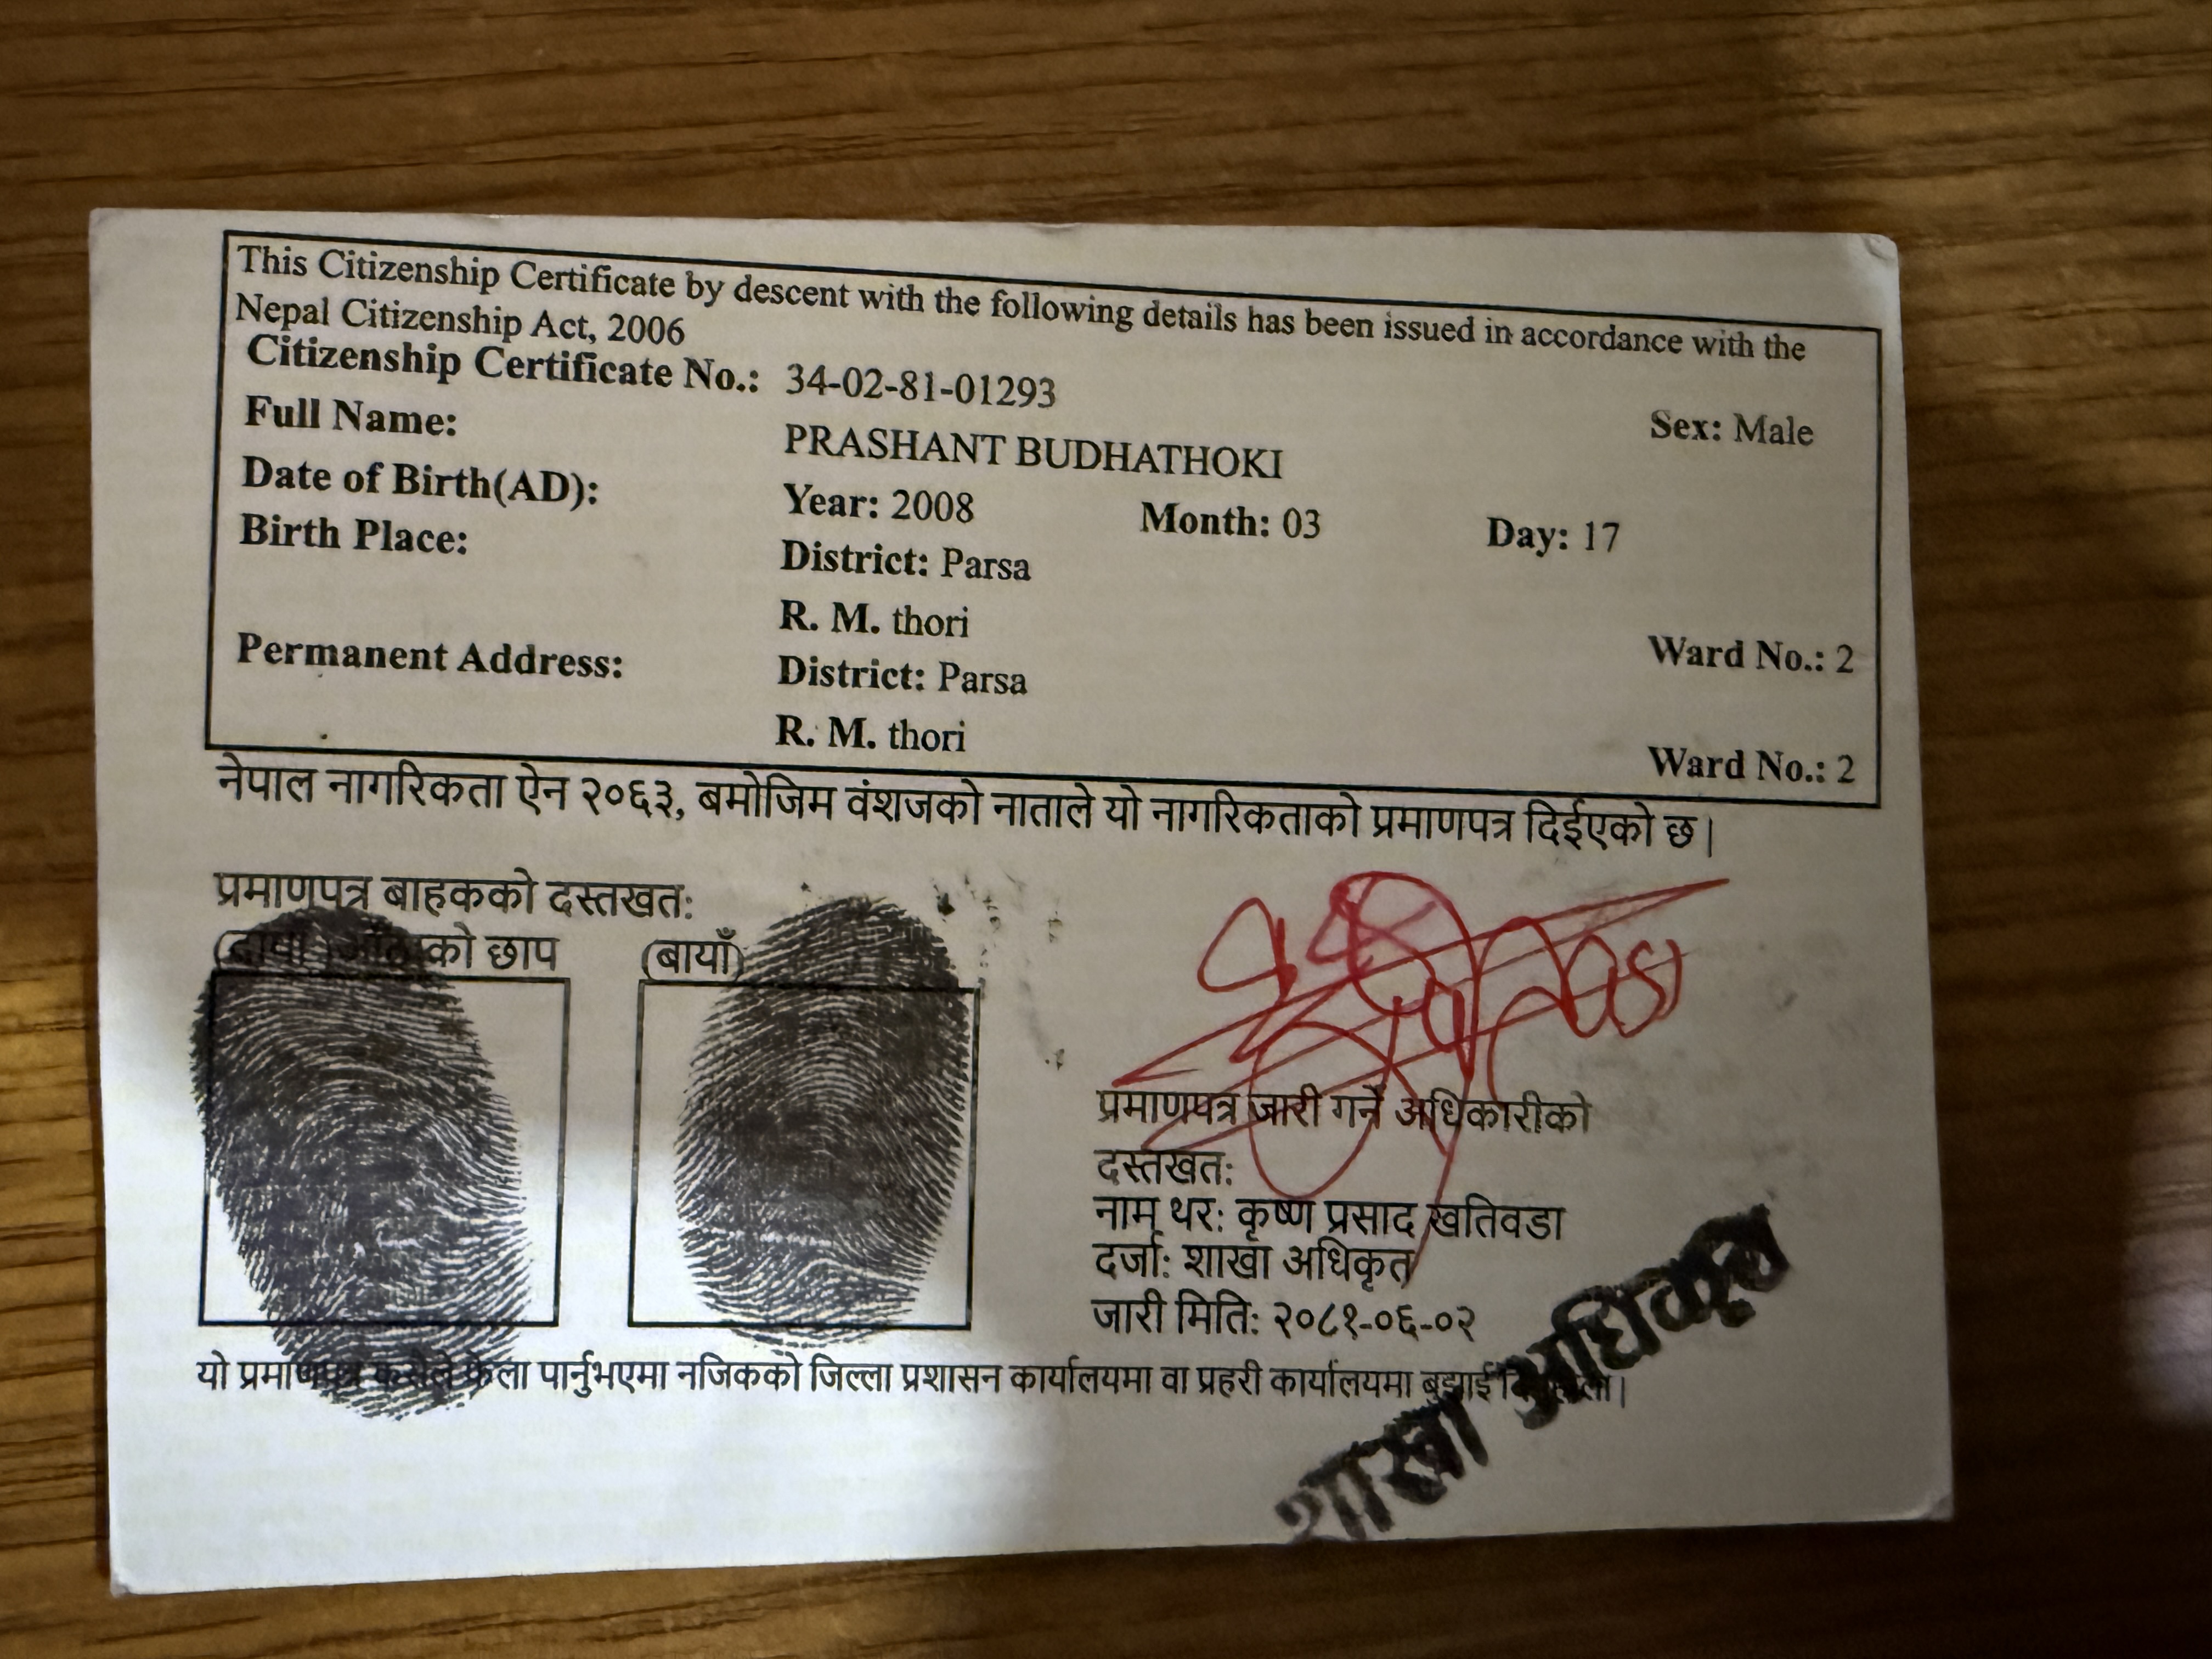 This Citizenship Certificate by descent with the following details has been issued in accordance with the
Nepal Citizenship Act, 2006
Citizenship Certificate No.: 34-02-81-01293 Sex: Male
Full Name: PRASHANT BUDHATHOKI
Date of Birth(AD): Year: 2008 Month: 03 Day: 17
Birth Place: District: Parsa
R. M. thori Ward No.: 2
Permanent Address: District: Parsa
R. M. thori Ward No.: 2
नेपाल नागरिकता ऐन २०६३, बमोजिम वंशजको नाताले यो नागरिकताको प्रमाणपत्र दिईएको छ|
प्रमाणपत्र बाहकको दस्तखत:
को छाप (बायाँ)
प्रमाणपत्र जारी गर्ने अधिकारीको
दस्तखत:
नाम थर: कृष्ण प्रसाद खतिवडा
दर्जा: शाखा अधिकृत
जारी मिति: २०८१-०६-०२
यो प्रमाणपत्र कसैले फेला पार्नुभएमा नजिकको जिल्ला प्रशासन कार्यालयमा वा प्रहरी कार्यालयमा बुझाई
शाखा अधिकृत